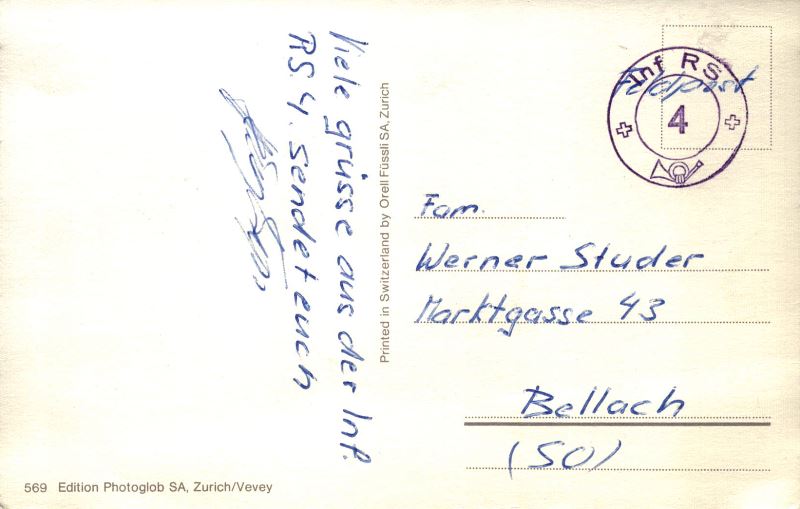 Viele grüsse aus der Inf.
RS. 4. sendet euch
Printed in Switzerland by Orell Füssli SA, Zurich
Inf RS
4
Feldpost
Fam.
Werner Studer
Marktgasse 43
Bellach
(SO)
569 Edition Photoglob SA, Zurich/Vevey